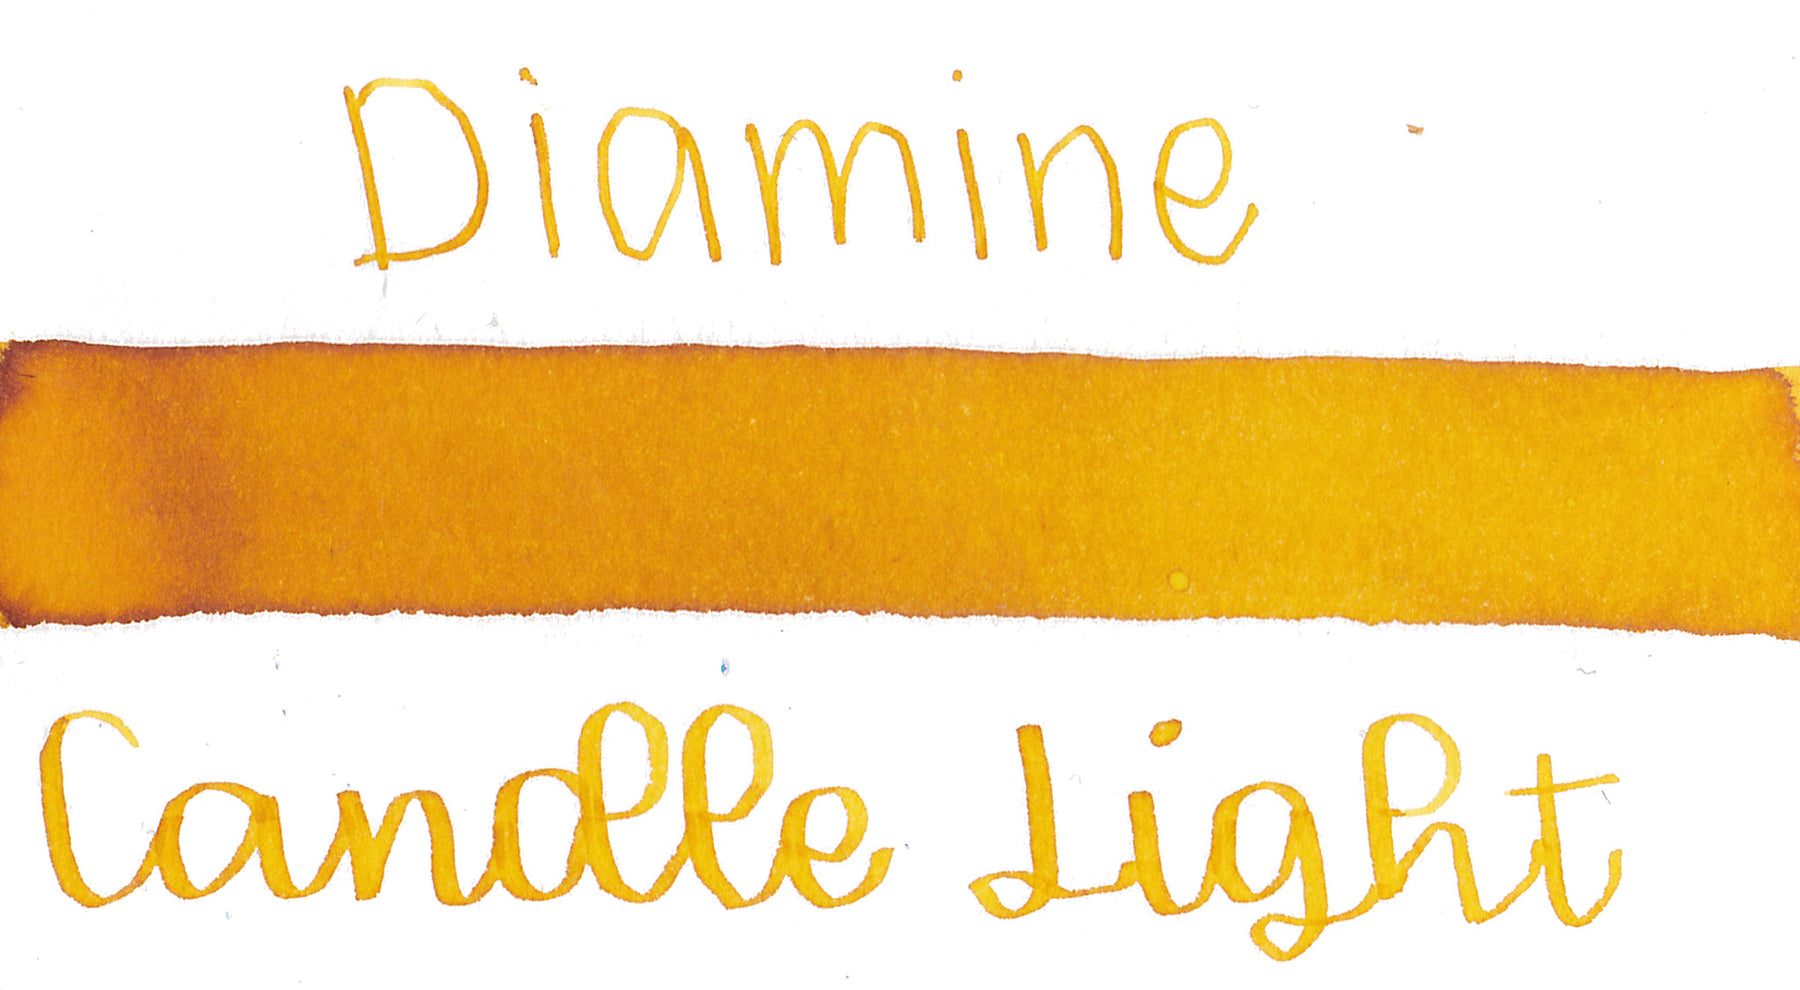 Diamine
Candle Light